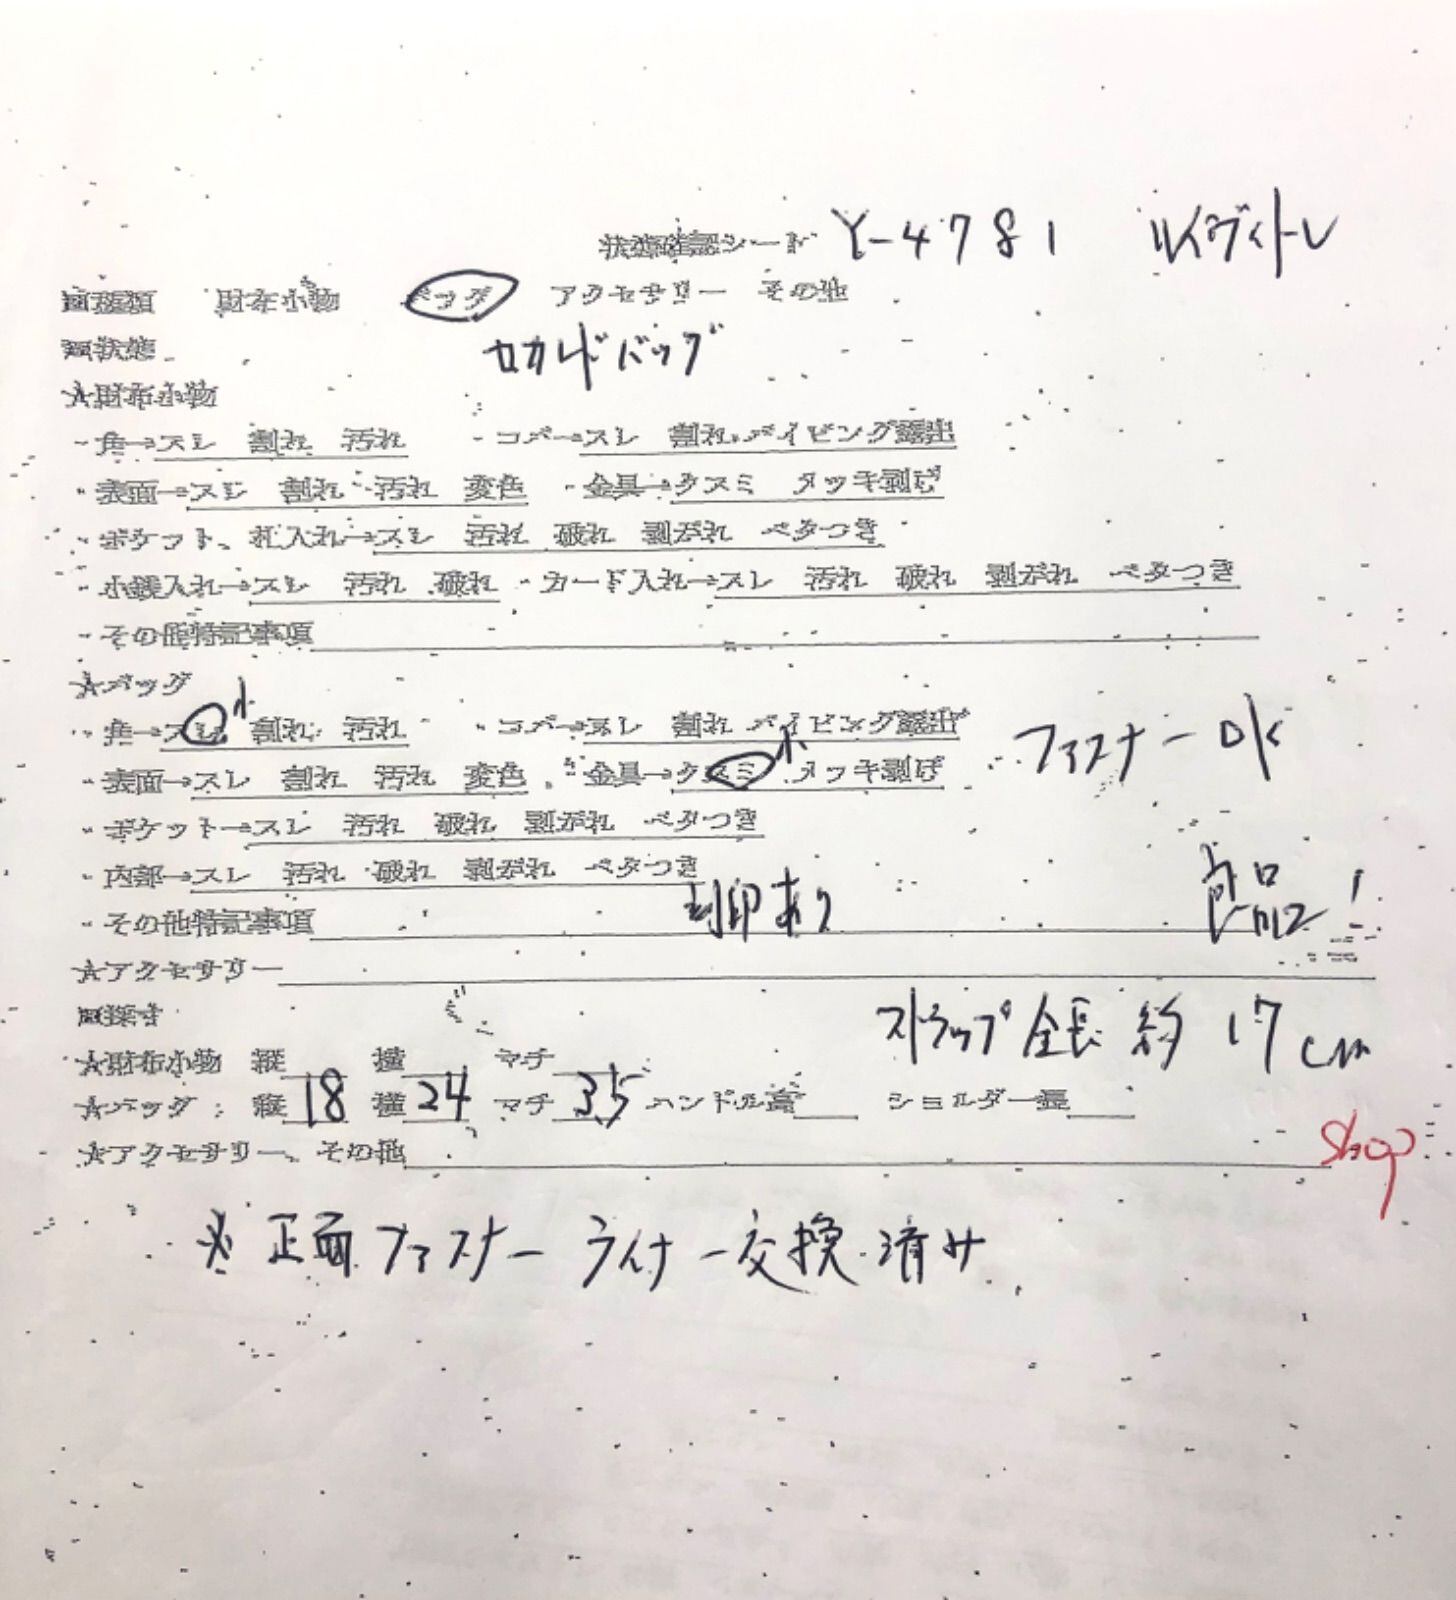 状態確認シート Y-4781 ルイヴィトン
■種類 財布小物 バッグ アクセサリー その他
■状態 セカンドバッグ
★財布小物
・角→スレ 割れ 汚れ ・コバ→スレ 割れ パイピング露出
・表面→スレ 割れ 汚れ 変色 ・金具→クスミ メッキ剥げ
・ポケット、札入れ→スレ 汚れ 破れ 剥がれ ベタつき
・小銭入れ→スレ 汚れ 破れ ・カード入れ→スレ 汚れ 破れ 剥がれ ベタつき
・その他特記事項
★バッグ
・角→スレ 小 割れ 汚れ ・コバ→スレ 割れ パイピング露出
・表面→スレ 割れ 汚れ 変色 ・金具→クスミ 小 メッキ剥げ ファスナーOK
・ポケット→スレ 汚れ 破れ 剥がれ ベタつき
・内部→スレ 汚れ 破れ 剥がれ ベタつき
・その他特記事項 刻印あり 良品!
★アクセサリー
■採寸 ストラップ全長 約17cm
★財布小物 縦 横 マチ
★バッグ: 縦 18 横 24 マチ 3.5 ハンドル高 ショルダー長
★アクセサリー、その他 Shop
※正面ファスナーライナー交換済み